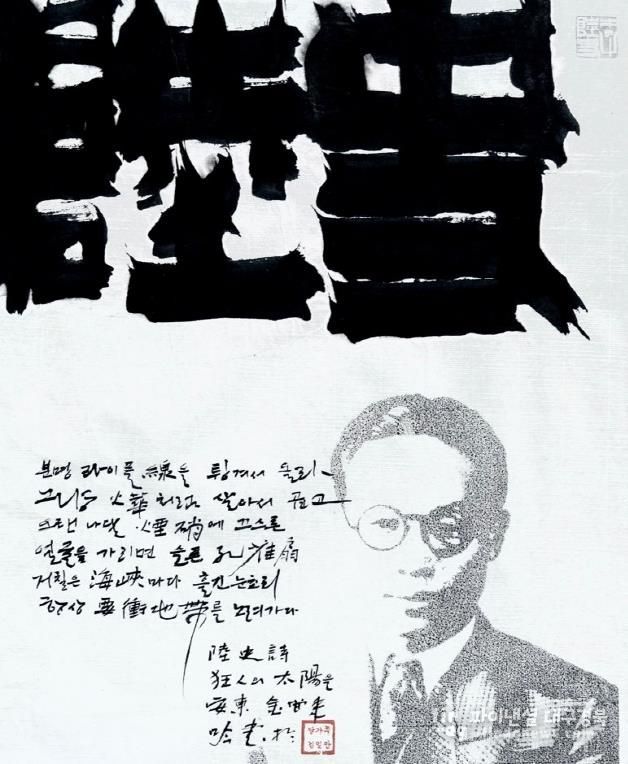 陸史
분명 라이플 線을 튕겨서 올라
그냥 火華처럼 살아서 곱고
오랜 나달 煙硝에 끄스른
얼굴을 가리면 슬픈 孔雀扇
거칠은 海峽마다 흘긴 눈초리
항상 要衝地帶를 노려가다
陸史 詩
狂人의 太陽을
安東 金
파이낸셜 대구경북